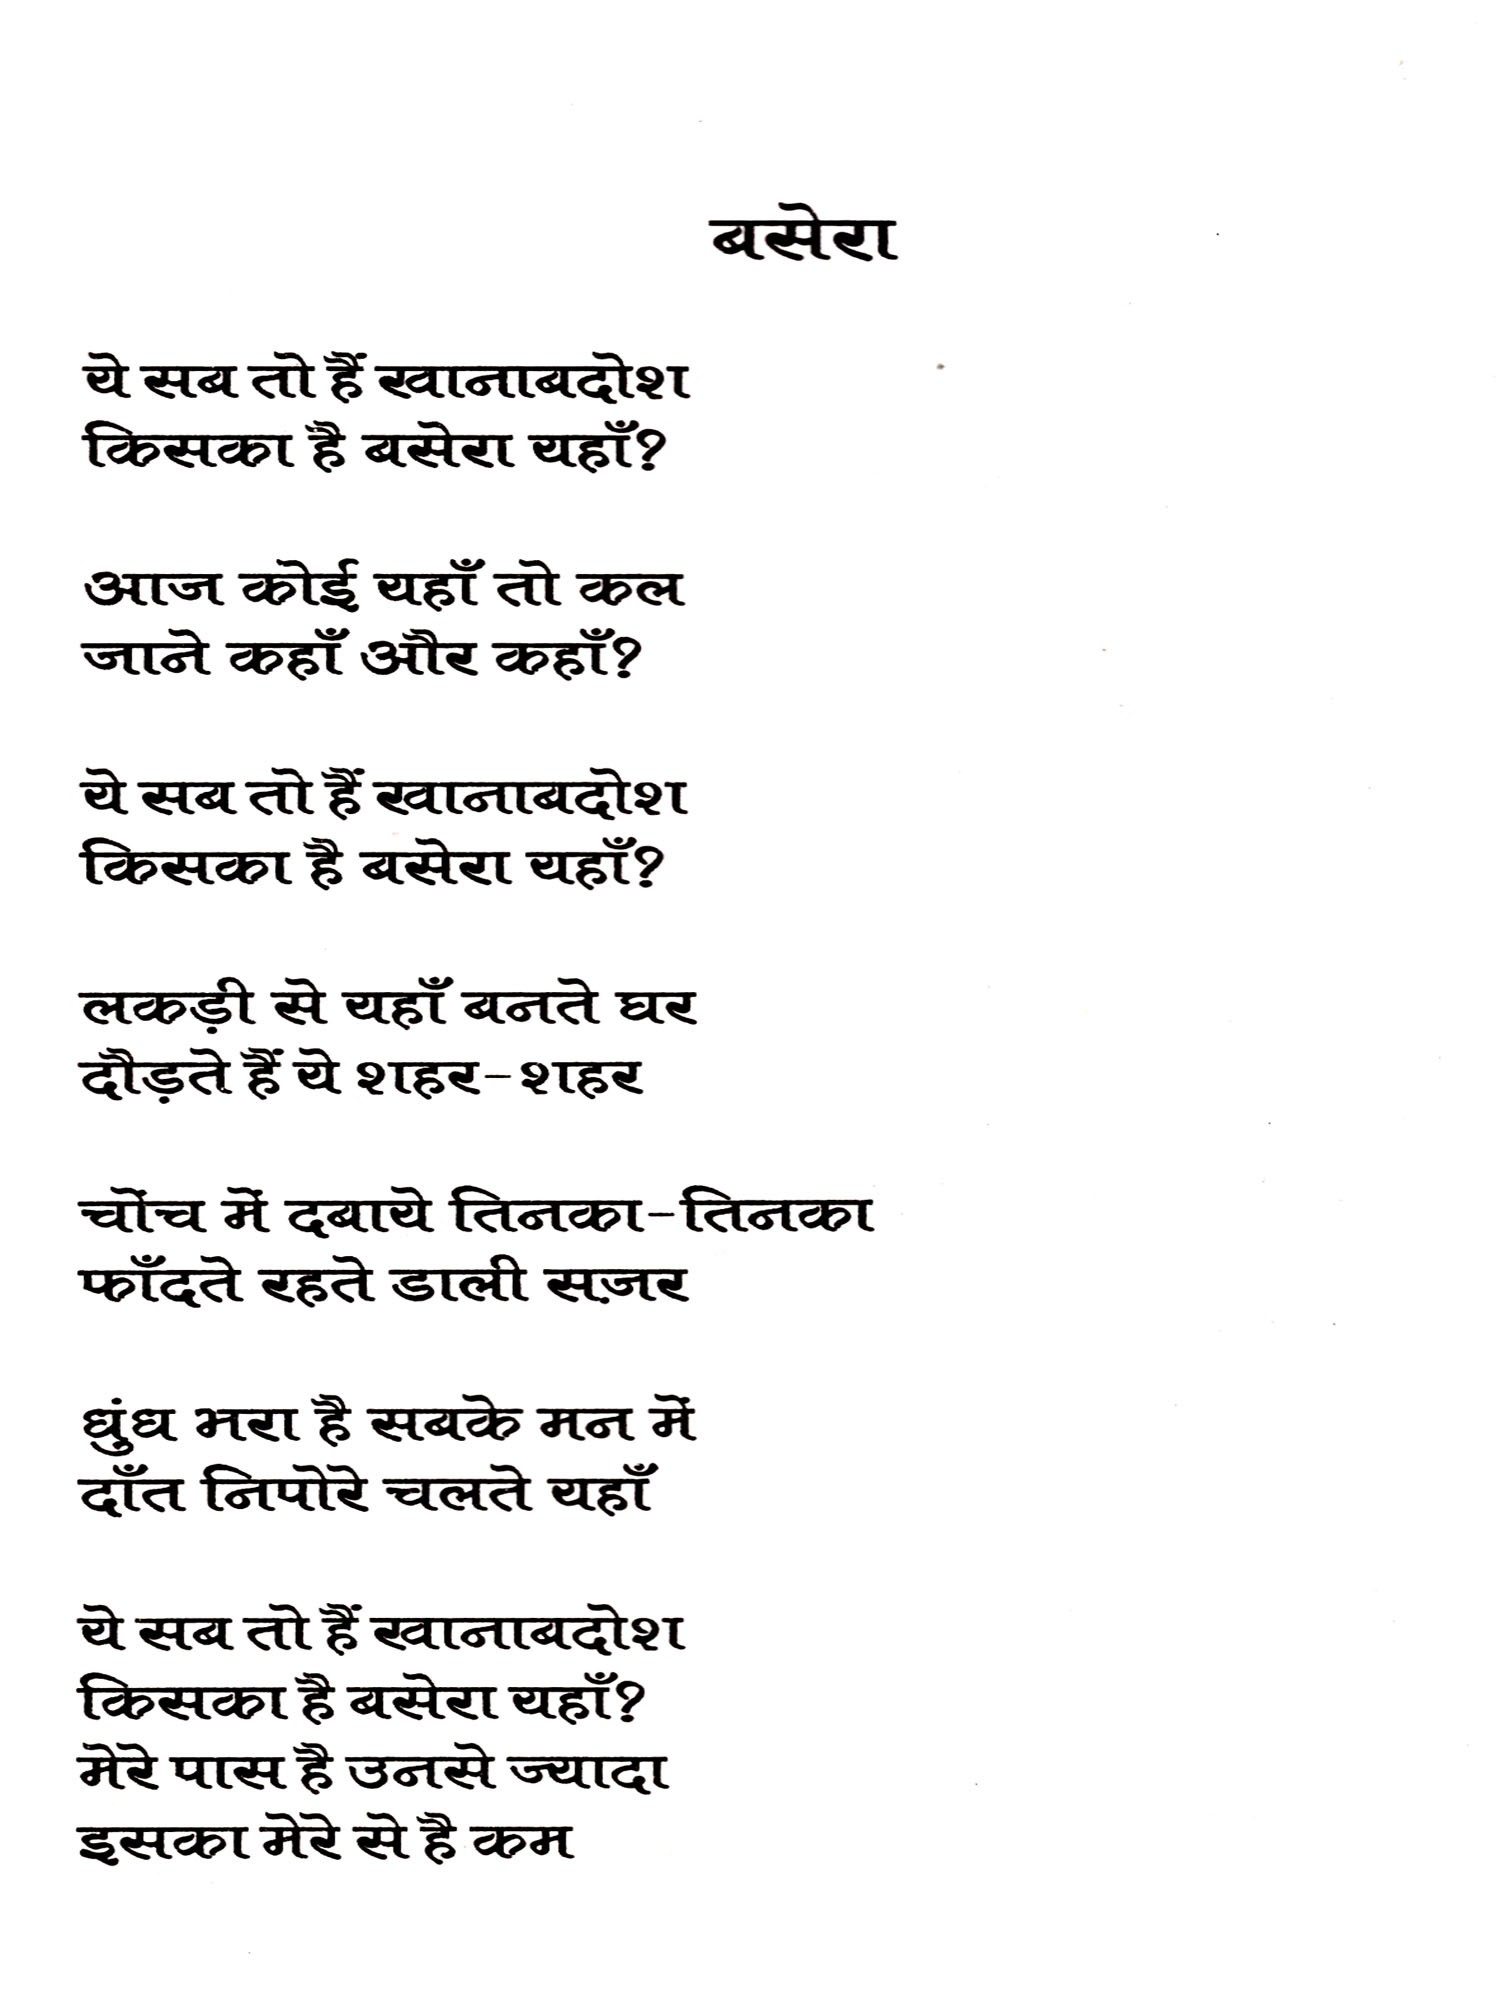 बसेरा
ये सब तो हैं खानाबदोश
किसका है बसेरा यहाँ?
आज कोई यहाँ तो कल
जाने कहाँ और कहाँ?
ये सब तो हैं खानाबदोश
किसका है बसेरा यहाँ?
लकड़ी से यहाँ बनते घर
दौड़ते हैं ये शहर-शहर
चोंच में दबाये तिनका-तिनका
फाँदते रहते डाली सज़र
धुंध भरा है सबके मन में
दाँत निपोरे चलते यहाँ
ये सब तो हैं खानाबदोश
किसका है बसेरा यहाँ?
मेरे पास है उनसे ज्यादा
इसका मेरे से है कम